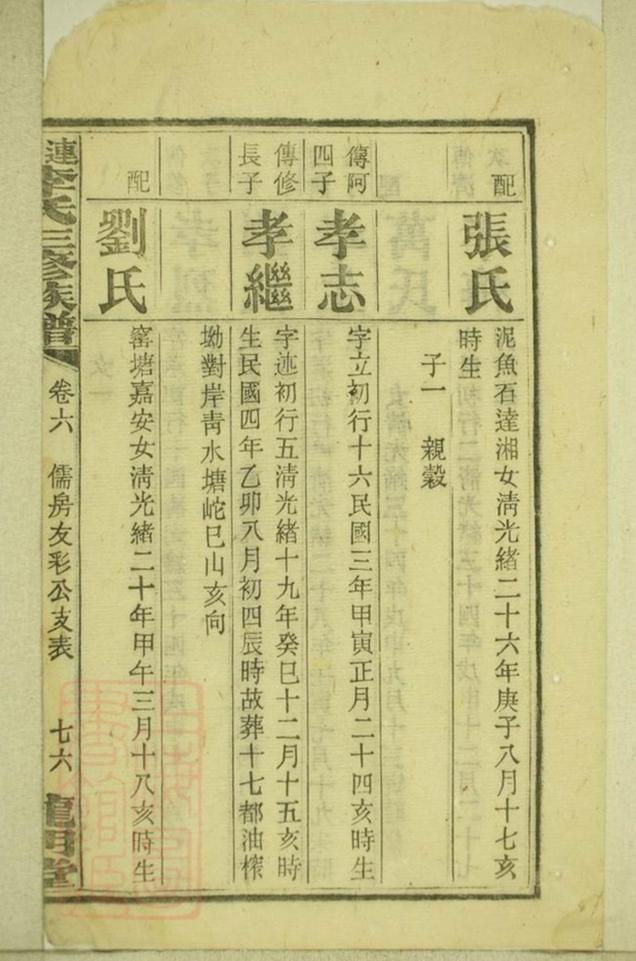 配
張氏
泥魚石達湘女清光緒二十六年庚子八月十七亥
時生
子一 親穀
傳阿
四子
孝志
字立初行十六民國三年甲寅正月二十四亥時生
傳修
長子
孝繼
字述初行五清光緒十九年癸巳十二月十五亥時
生民國四年乙卯八月初四辰時故葬十七都油榨
坳對岸靑水塘屹巳山亥向
配
劉氏
窰塘嘉安女淸光緒二十年甲午三月十八亥時生
連李氏三修族譜
卷六 儒房友彩公支表
七六
龍門堂